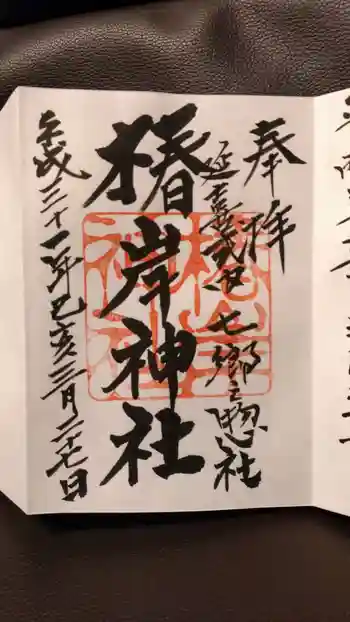 奉拝
延喜式内七郷之惣社
椿岸神社
平成三十一年己亥三月二十七日